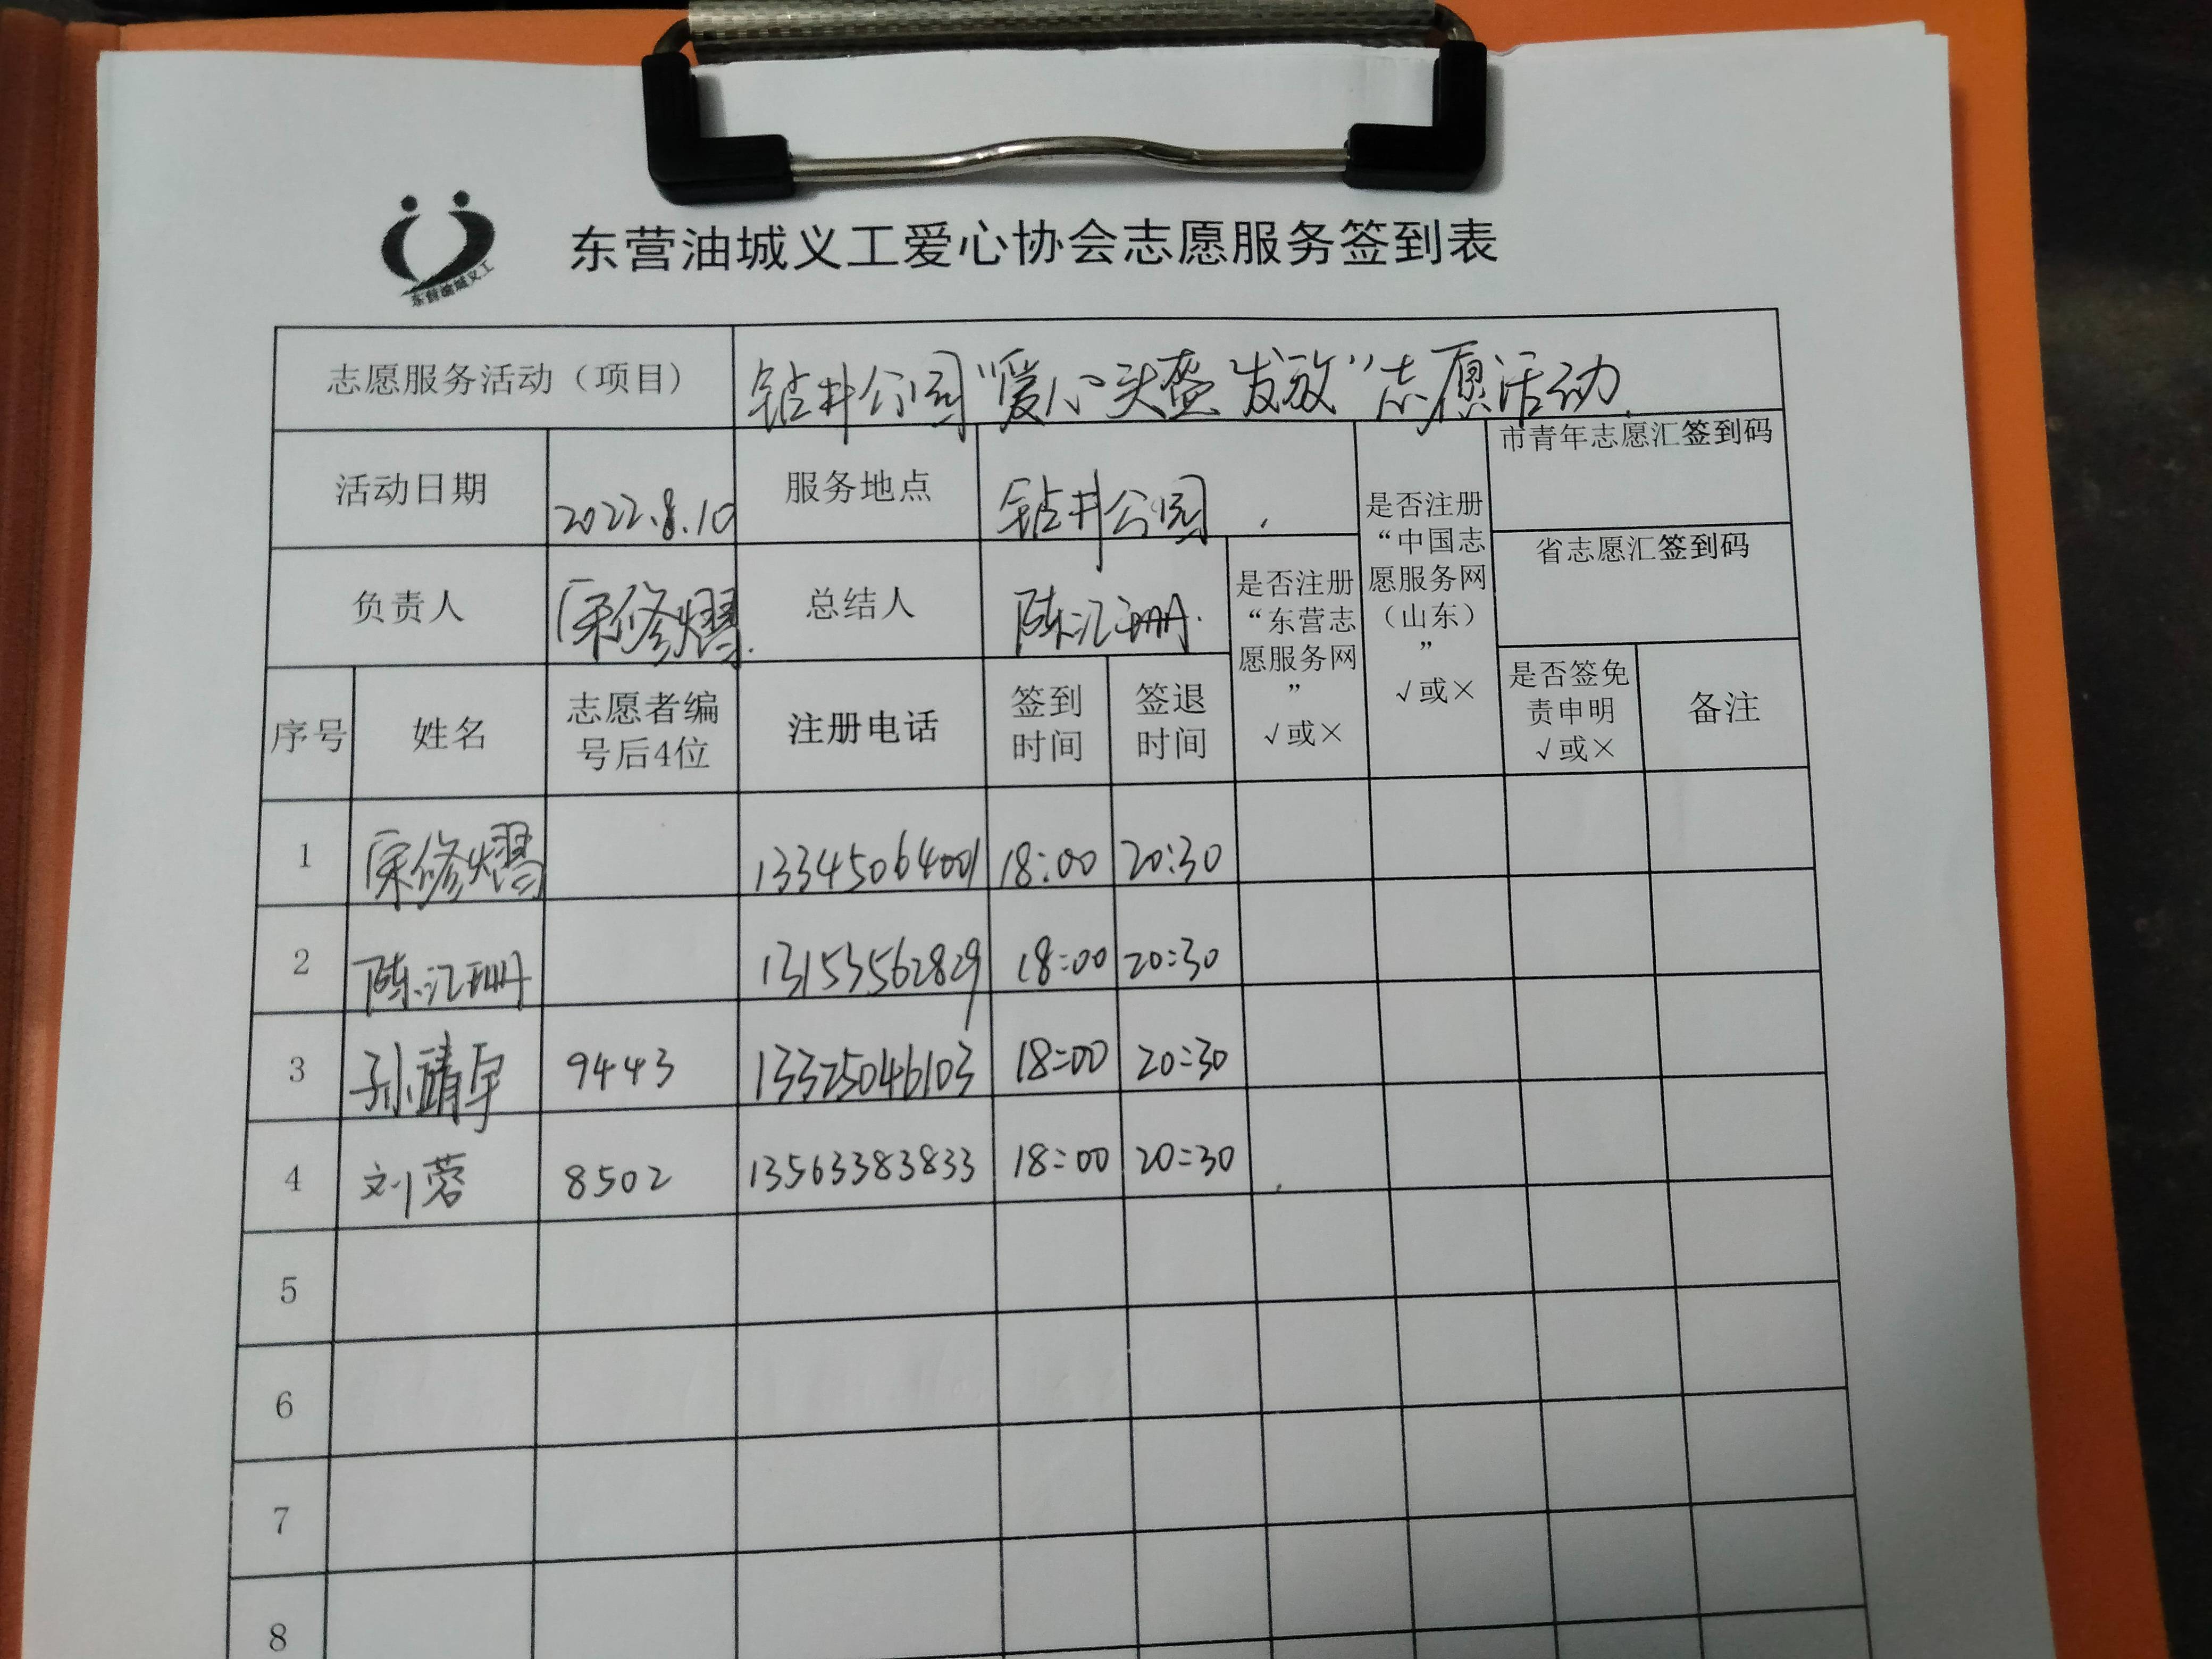 东营油城义工
东营油城义工爱心协会志愿服务签到表
志愿服务活动（项目） 钻井公园“爱心头盔发放”志愿活动.
活动日期 2022.8.10 服务地点 钻井公园 是否注册“中国志愿服务网（山东）” √或× 市青年志愿汇签到码
省志愿汇签到码
负责人 宋修熠 总结人 陈汇珊. 是否注册“东营志愿服务网” √或×
序号 姓名 志愿者编号后4位 注册电话 签到时间 签退时间 是否签免责申明 √或× 备注
1 宋修熠 13345064001 18:00 20:30
2 陈汇珊 13153562829 18:00 20:30
3 孙靖宇 9443 13325046103 18:00 20:30
4 刘蓉 8502 13563383833 18:00 20:30
5
6
7
8